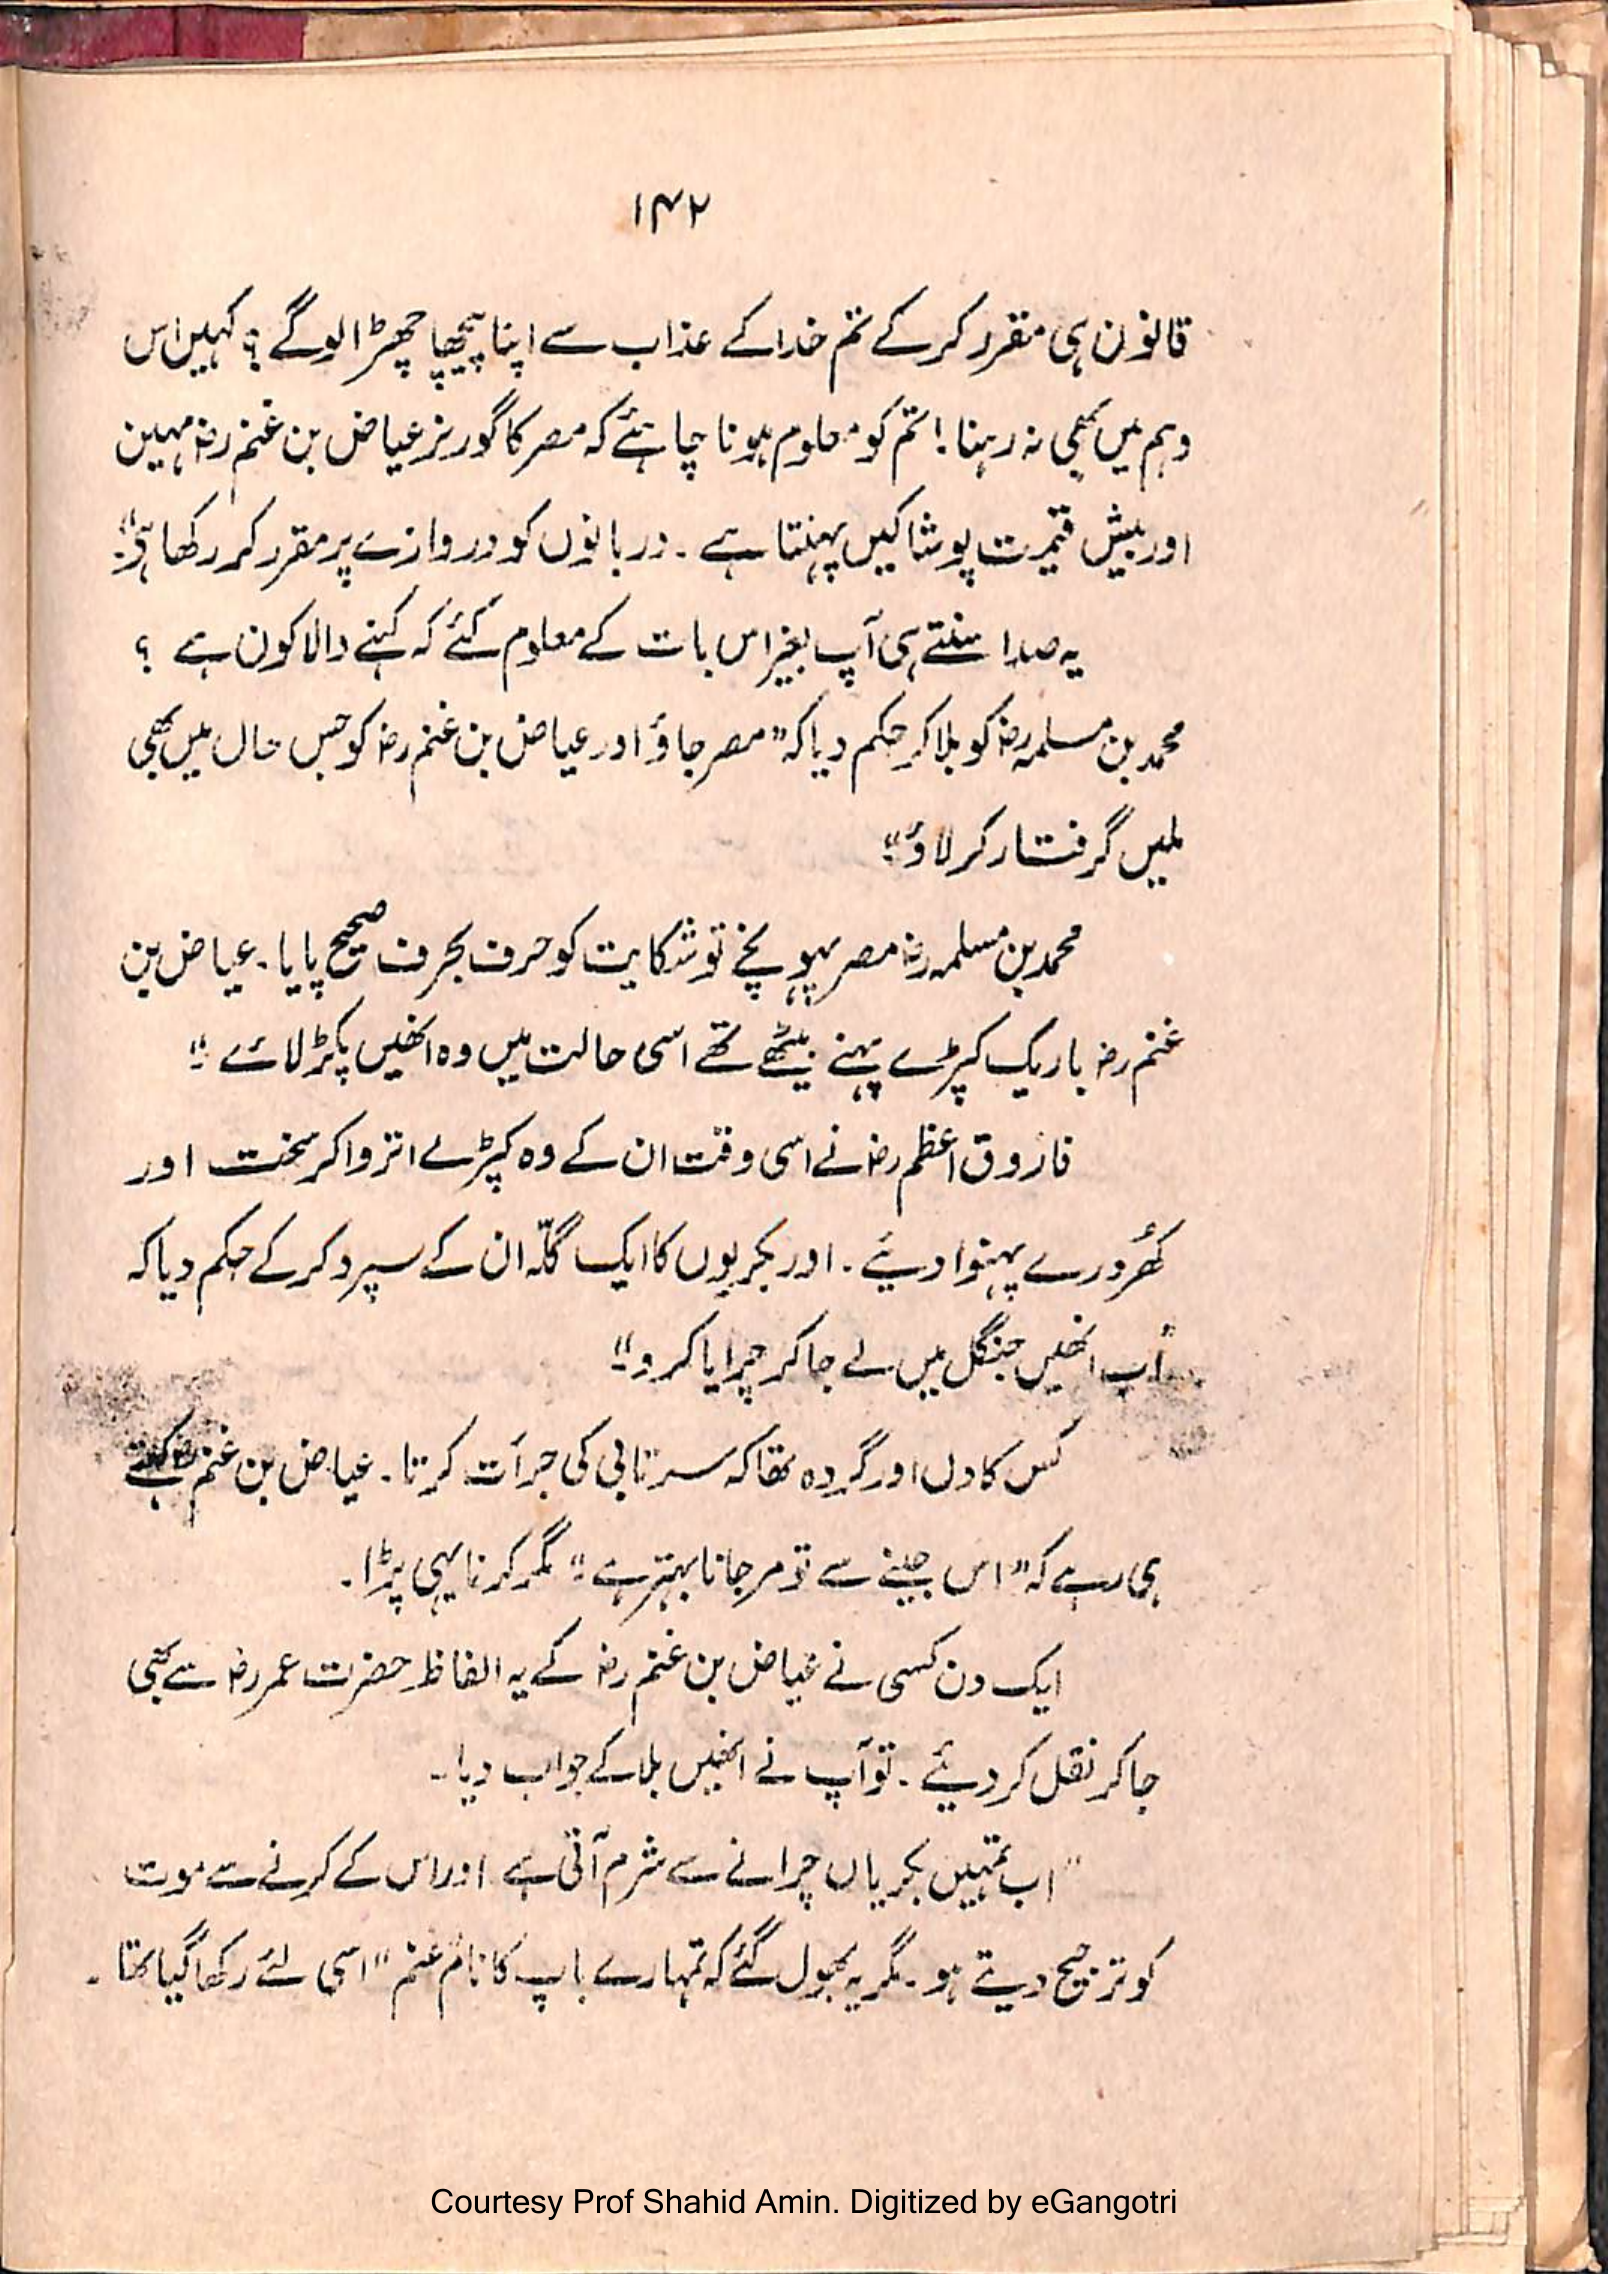 ۱۴۲
قانون ہی مقرر کر کے تم خدا کے عذاب سے اپنا پیچھا چھڑا لوگے ؟ کہیں اس
وہم میں بھی نہ رہنا! تم کو معلوم ہونا چاہئے کہ مصر کا گورنر عیاض بن غنم رضؓ مہین
اور بیش قیمت پوشاکیں پہنتا ہے ۔ دربانوں کو دروازے پر مقرر کر رکھا ہے"۔
یہ صدا سنتے ہی آپ بغیر اس بات کے معلوم کئے کہ کہنے والا کون ہے ؟
محمد بن مسلمہ رضؓ کو بلا کر حکم دیا کہ "مصر جاؤ اور عیاض بن غنم رضؓ کو جس حال میں بھی
ملیں گرفتار کر لاؤ"۔
محمد بن مسلمہ رضؓ مصر پہونچے تو شکایت کو حرف بحرف صحیح پایا ۔ عیاض بن
غنم رضؓ باریک کپڑے پہنے بیٹھے تھے اسی حالت میں وہ انھیں پکڑ لائے ۔"
فاروق اعظم رضؓ نے اسی وقت ان کے وہ کپڑے اتروا کر سخت اور
کھُردرے پہنوا دیئے ۔ اور بکریوں کا ایک گلّہ ان کے سپرد کر کے حکم دیا کہ
"اب انھیں جنگل میں لے جا کر چرایا کرو"۔
کس کا دل اور گردہ تھا کہ سرتابی کی جرأت کرتا ۔ عیاض بن غنم رضؓ کہتے
ہی رہے کہ "اس جینے سے تو مر جانا بہتر ہے ۔" مگر کرنا یہی پڑا ۔
ایک دن کسی نے عیاض بن غنم رضؓ کے یہ الفاظ حضرت عمر رضؓ سے بھی
جا کر نقل کر دیئے ۔ تو آپ نے انھیں بلا کے جواب دیا ۔
"اب تمہیں بکریاں چرانے سے شرم آتی ہے اور اس کے کرنے سے موت
کو ترجیح دیتے ہو ۔ مگر یہ بھول گئے کہ تمہارے باپ کا نام "غنم" اسی لئے رکھا گیا تھا ۔
Courtesy Prof Shahid Amin. Digitized by eGangotri